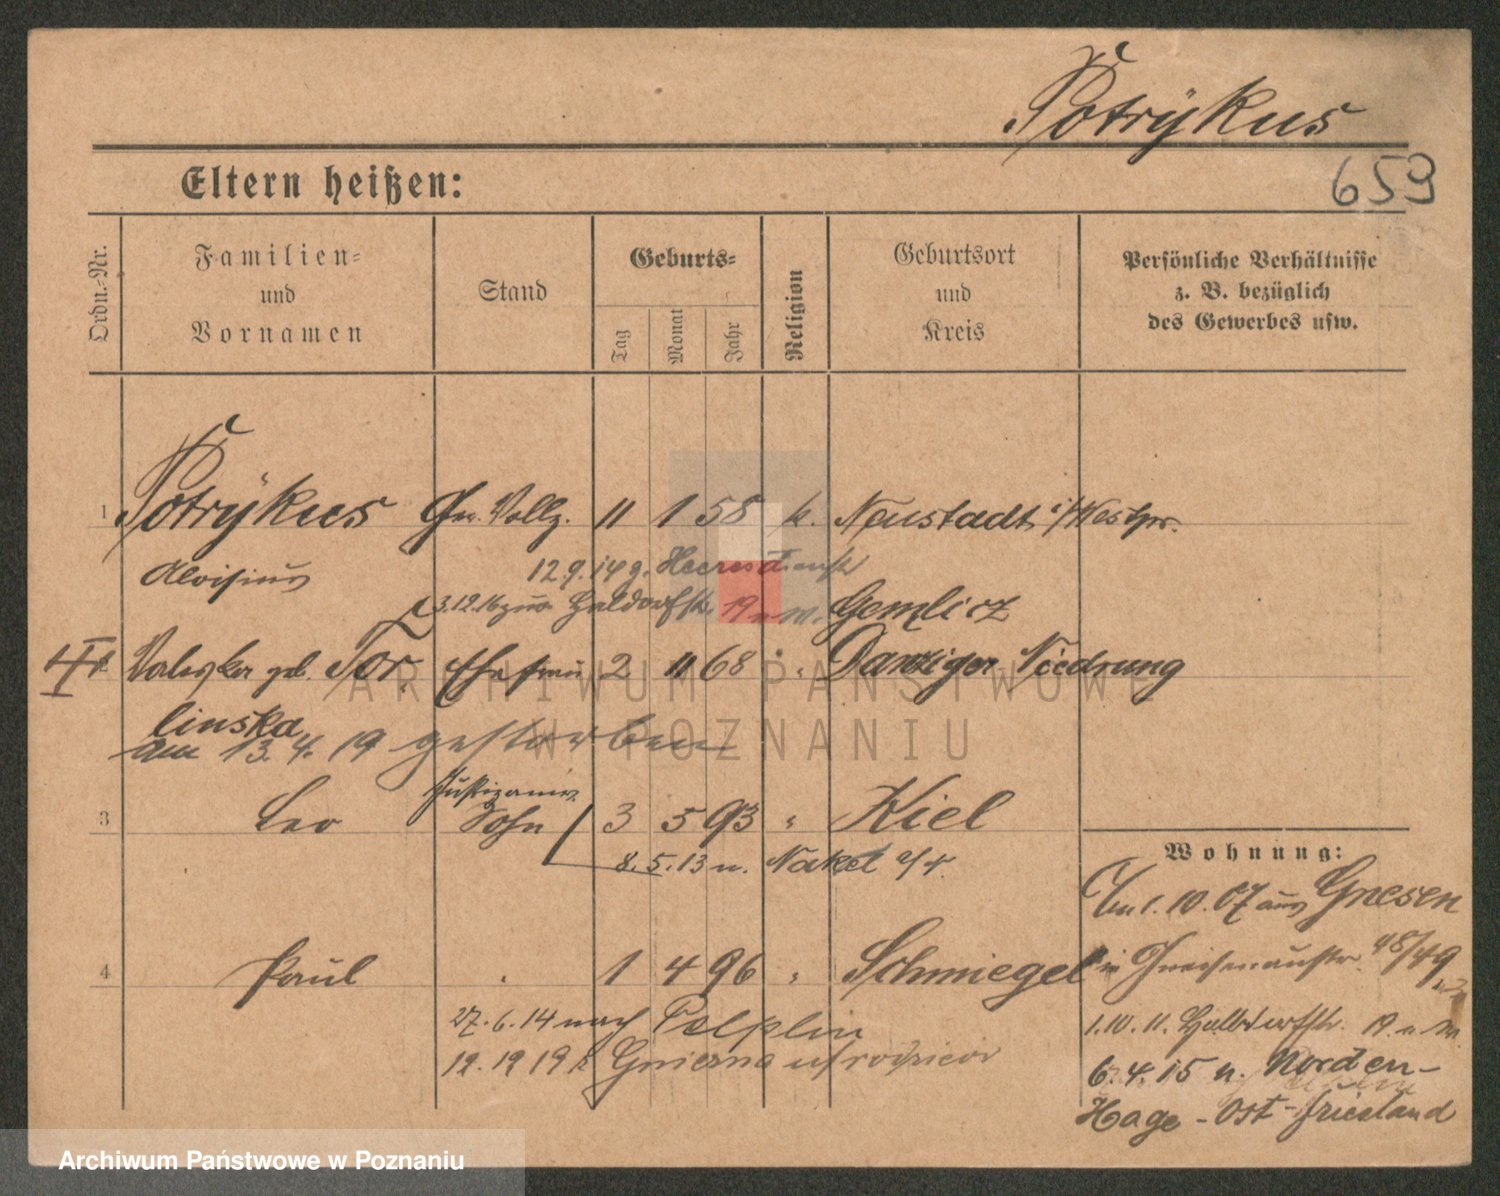 Potrykus
659
Eltern heißen:
Ordn.-Nr.
Familien-
und
Vornamen
Stand
Geburts-
Tag
Monat
Jahr
Religion
Geburtsort
und
Kreis
Persönliche Verhältnisse
z. B. bezüglich
des Gewerbes usw.
1 Potrykus Ger. Vollz. 11 1 58 k. Neustadt i/Westpr.
Aloisius 12.9.14 z. Heeresdienst
3.12.16 19 Gemlitz
2 geb. Tor Ehefrau 2 11 68 " Danziger Niedrung
linska
am 13.4.19 gestorben
3 Leo Sohn 3 5 93 " Kiel
8.5.13 n. Nakel a/N.
4 Paul " 1 4 96 " Schmiegel
27.6.14 nach Pelplin
12.12.19
Wohnung:
1.10.07 aus Gnesen
in Gneisenaustr. 48/49
1.10.11.
6.4.15 n. Norden-
Hage-Ost-friesland
ARCHIWUM PAŃSTWOWE
W POZNANIU
Archiwum Państwowe w Poznaniu